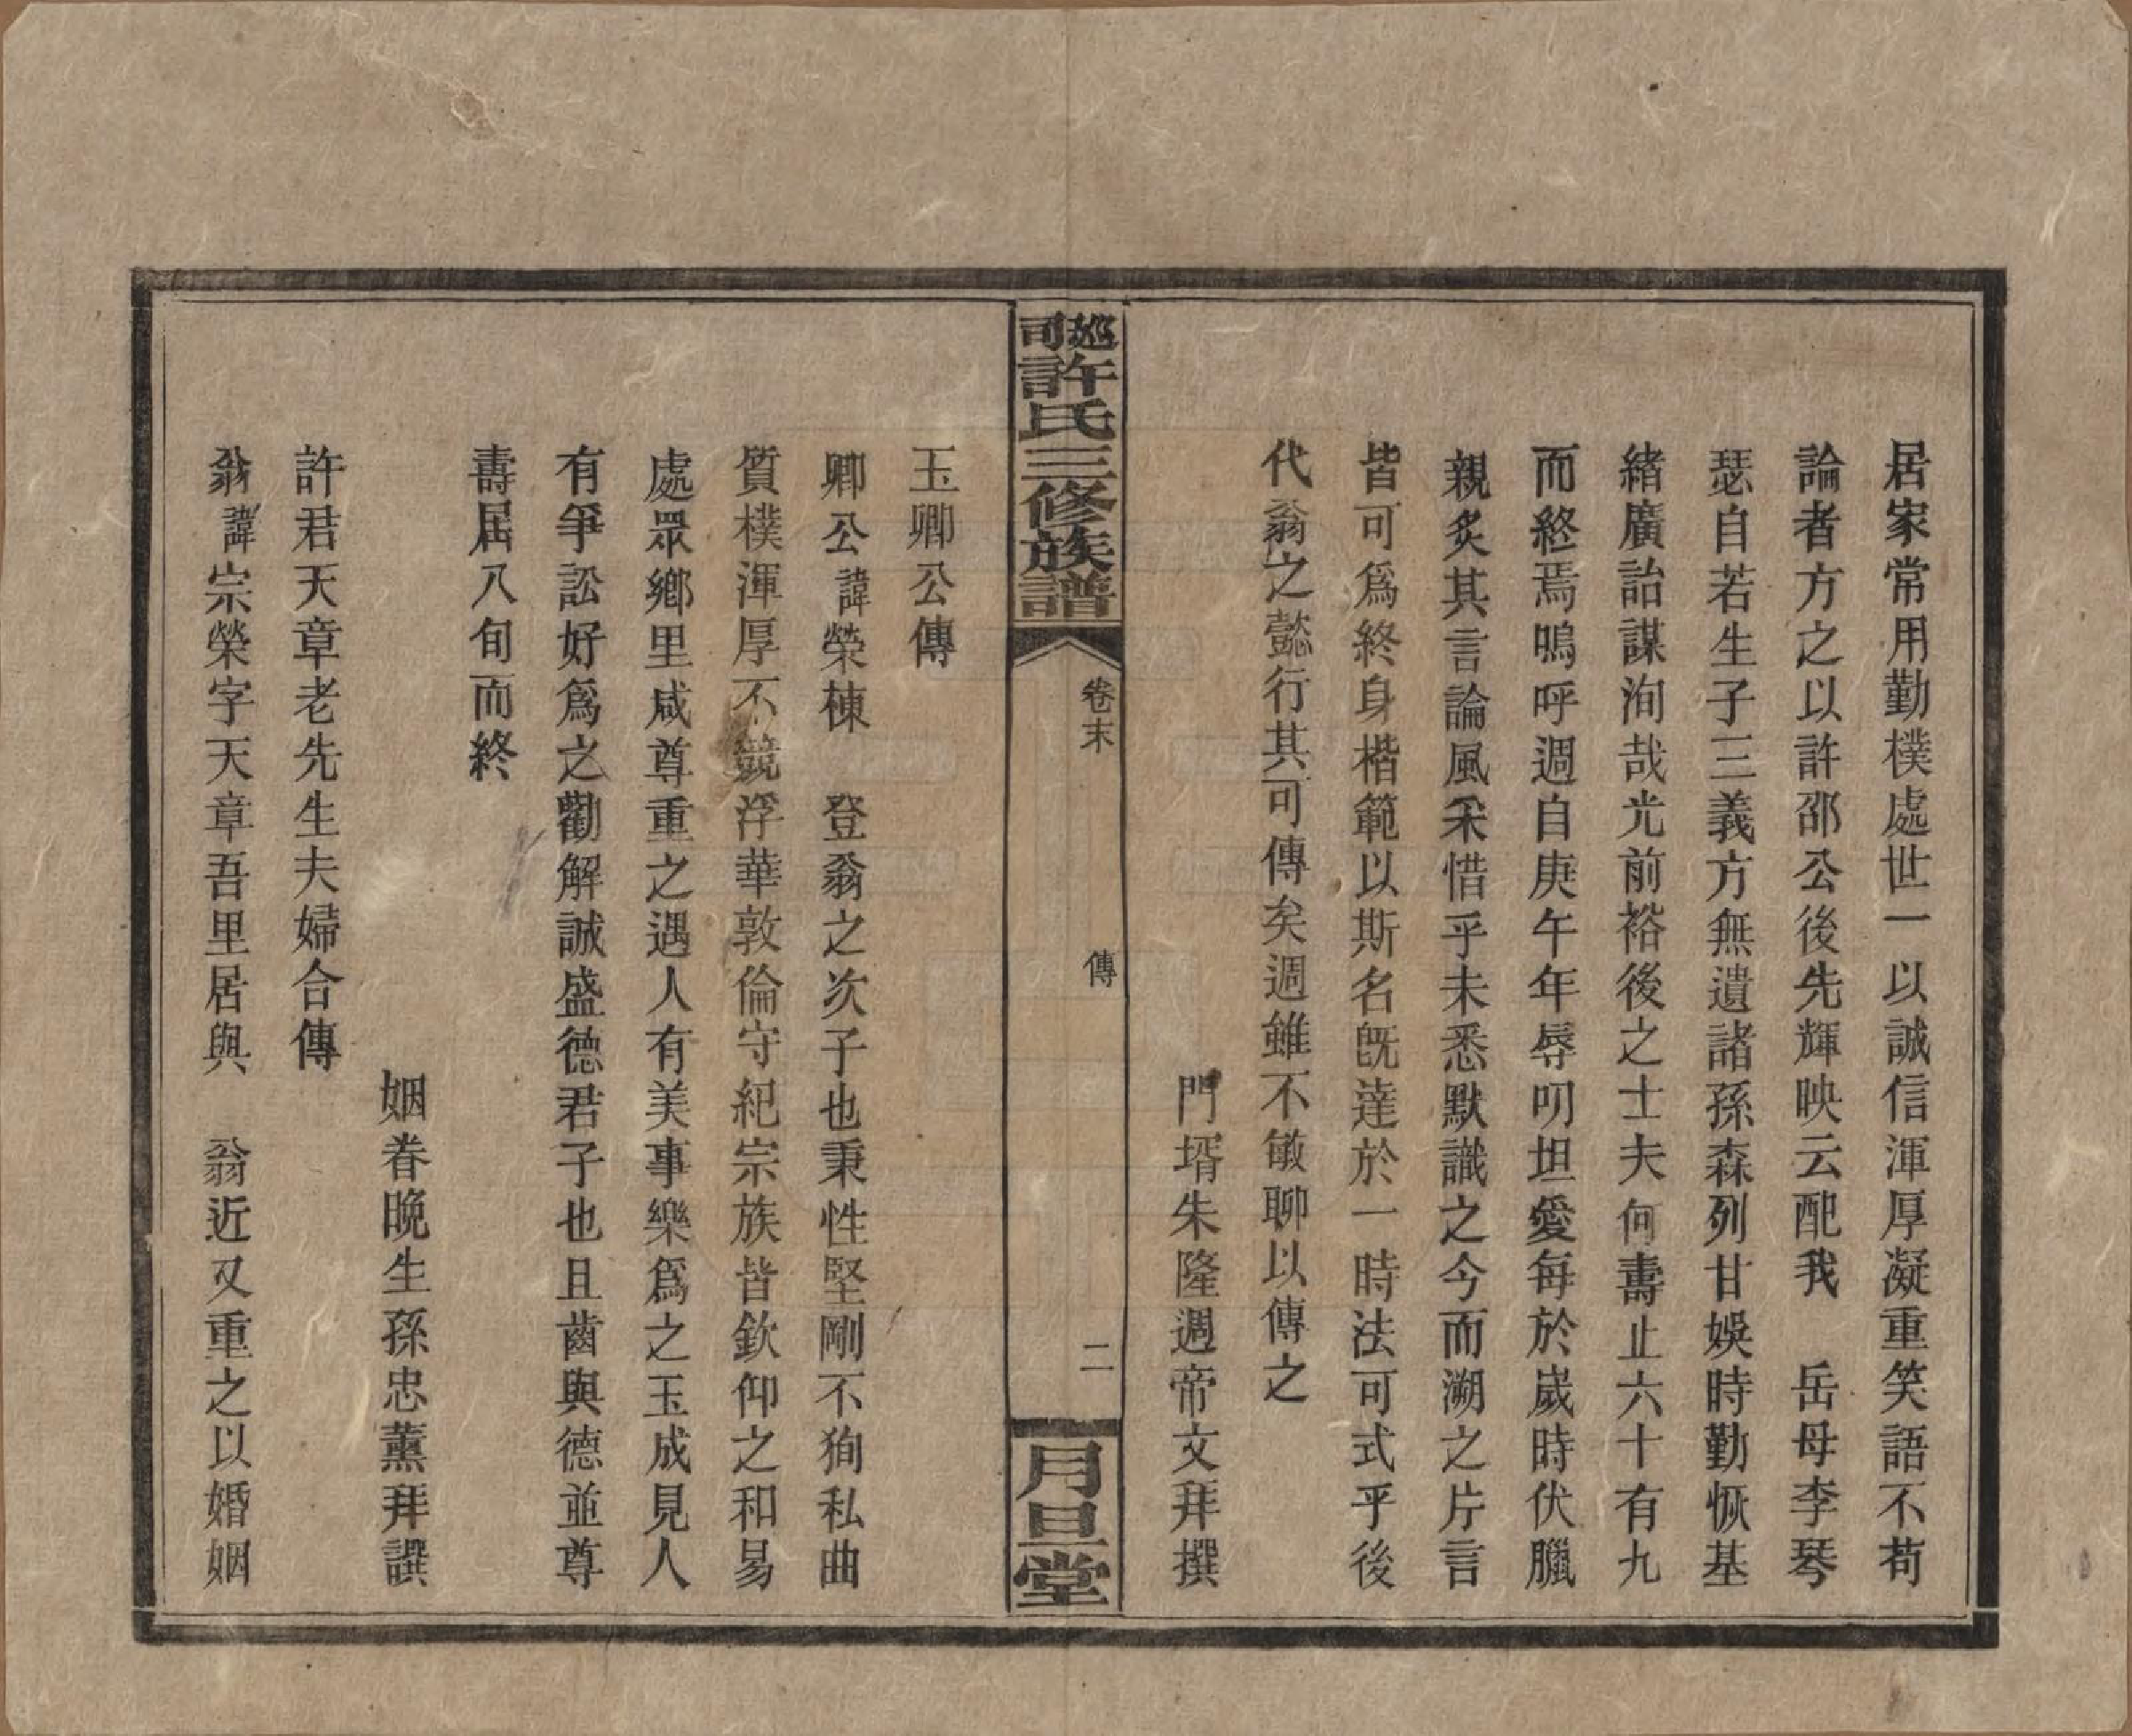 居家常用勤樸處世一以誠信渾厚凝重笑語不苟
論者方之以許邵公後先輝映云配我　岳母李琴
瑟自若生子三義方無遺諸孫森列甘娛時勤恢基
緒廣詒謀洵哉光前裕後之士夫何壽止六十有九
而終焉嗚呼週自庚午年辱叨坦愛每於歲時伏臘
親炙其言論風采惜乎未悉默識之今而溯之片言
皆可爲終身楷範以斯名旣達於一時法可式乎後
代翁之懿行其可傳矣週雖不敏聊以傳之
門壻朱隆週帝文拜撰
巡司許氏三修族譜
卷末
傳
二
月旦堂
玉卿公傳
卿公諱榮棟　登翁之次子也秉性堅剛不狥私曲
質樸渾厚不競浮華敦倫守紀宗族皆欽仰之和易
處眾鄉里咸尊重之遇人有美事樂爲之玉成見人
有爭訟好爲之勸解誠盛德君子也且齒與德並尊
壽居八旬而終
姻眷晚生孫忠薰拜譔
許君天章老先生夫婦合傳
翁諱宗榮字天章吾里居與　翁近又重之以婚姻